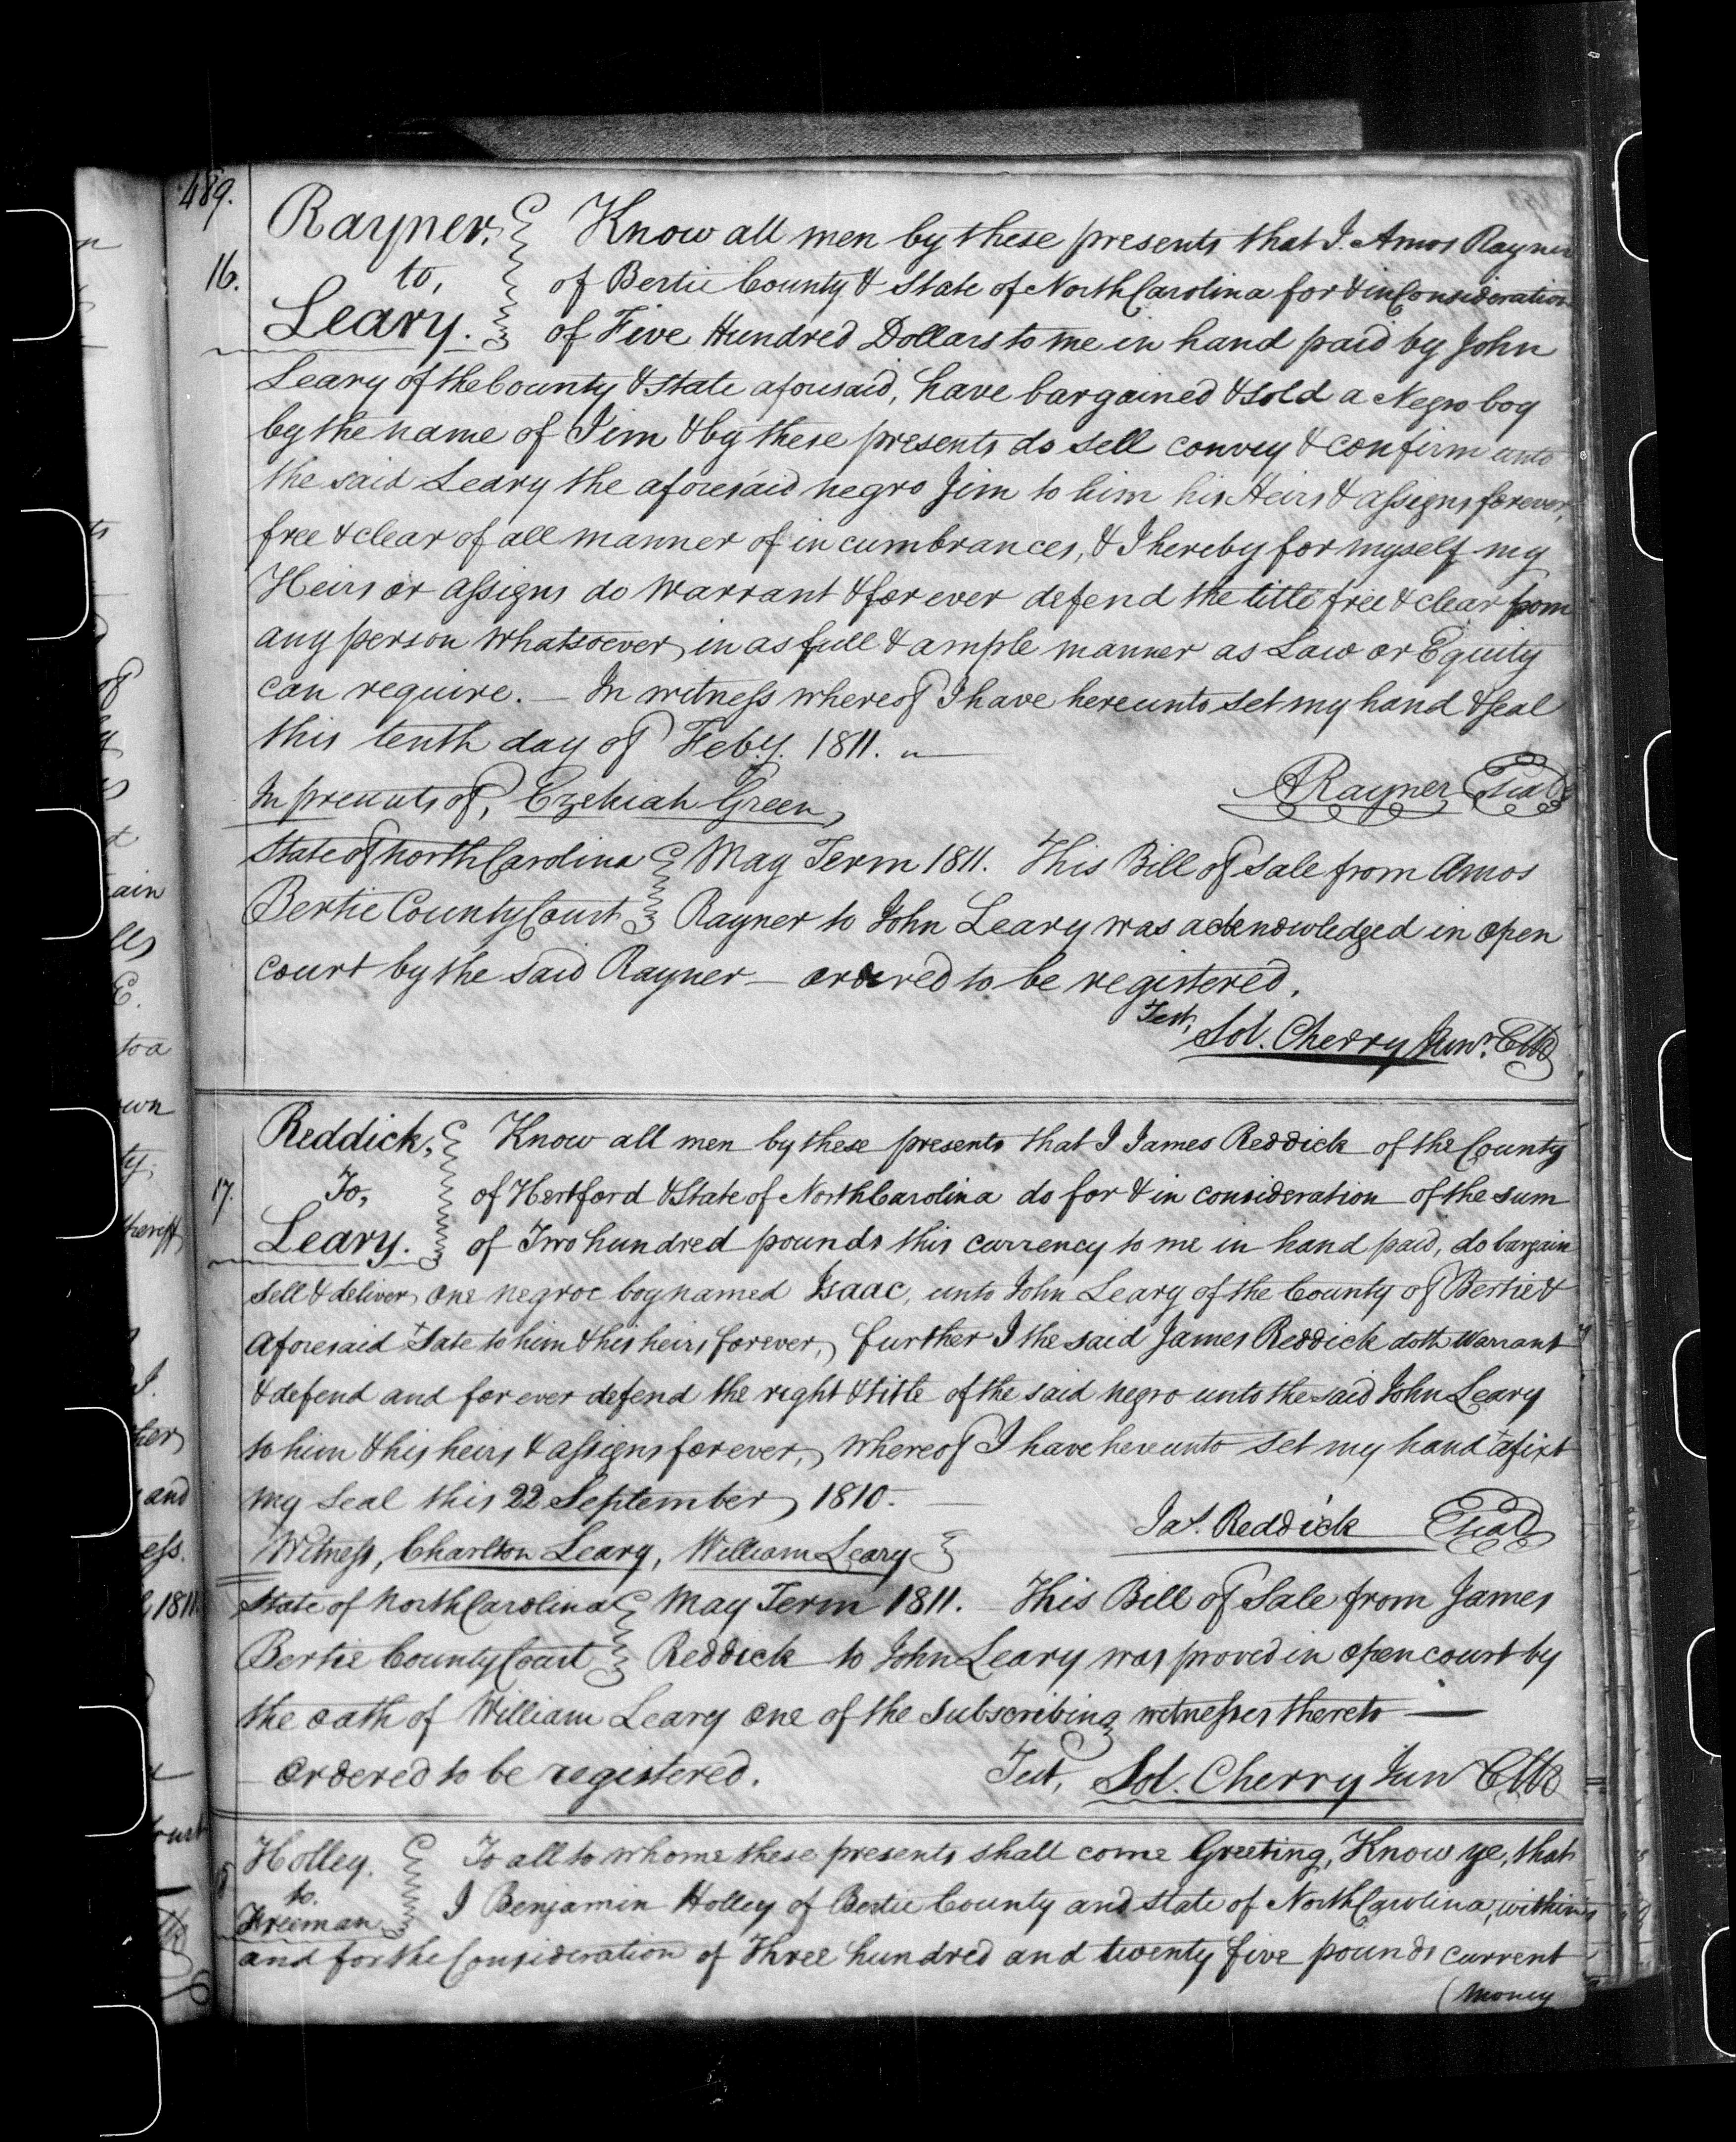 489.
Rayner, Know all men by these presents that I. Amos Rayner
16. to, of Bertie County & State of North Carolina for & in Consideration
Leary. of Five Hundred Dollars to me in hand paid by John
Leary of the County & State aforesaid, have bargained & sold a Negro boy
by the name of Jim & by these presents do sell convey & confirm unto
the said Leary the aforesaid negro Jim to him his Heirs & assigns forever,
free & clear of all manner of incumbrances, & I hereby for myself my
Heirs or assigns do warrant & forever defend the title free & clear from
any person whatsoever, in as full & ample manner as Law or Equity
can require. — In witness whereof I have hereunto set my hand & seal
this tenth day of Feby. 1811. —
In presents of, Ezekiah Green, ARayner Seal
State of North Carolina May Term 1811. This Bill of Sale from Amos
Bertie County Court Rayner to John Leary was acknowledged in open
court by the said Rayner — ordered to be registered.
Test, Sol. Cherry Junr. CBC
Reddick, Know all men by these presents that I James Reddick of the County
17. To, of Hertford & State of North Carolina do for & in consideration of the sum
Leary. of Two hundred pounds this currency to me in hand paid, do bargain
sell & deliver, one negroe boy named Isaac, unto John Leary of the County of Bertie &
aforesaid State to him & his heirs forever, further I the said James Reddick doth Warrant
& defend and for ever defend the right & title of the said negro unto the said John Leary
to him & his heirs & assigns forever, whereof I have hereunto set my hand & afixt
my seal this 22 September, 1810. —
Jas. Reddick Seal
Witness, Charlton Leary, William Leary
State of North Carolina May Term 1811. This Bill of Sale from James
Bertie County Court Reddick to John Leary was proved in open court by
the oath of William Leary one of the subscribing witnesses thereto —
ordered to be registered. Test, Sol. Cherry Jun CBC
Holley. To all to whome these presents shall come Greeting, Know ye, that
to. I Benjamin Holley of Bertie County and State of North Carolina, within
Freeman and for the Consideration of Three hundred and twenty five pounds current
(money